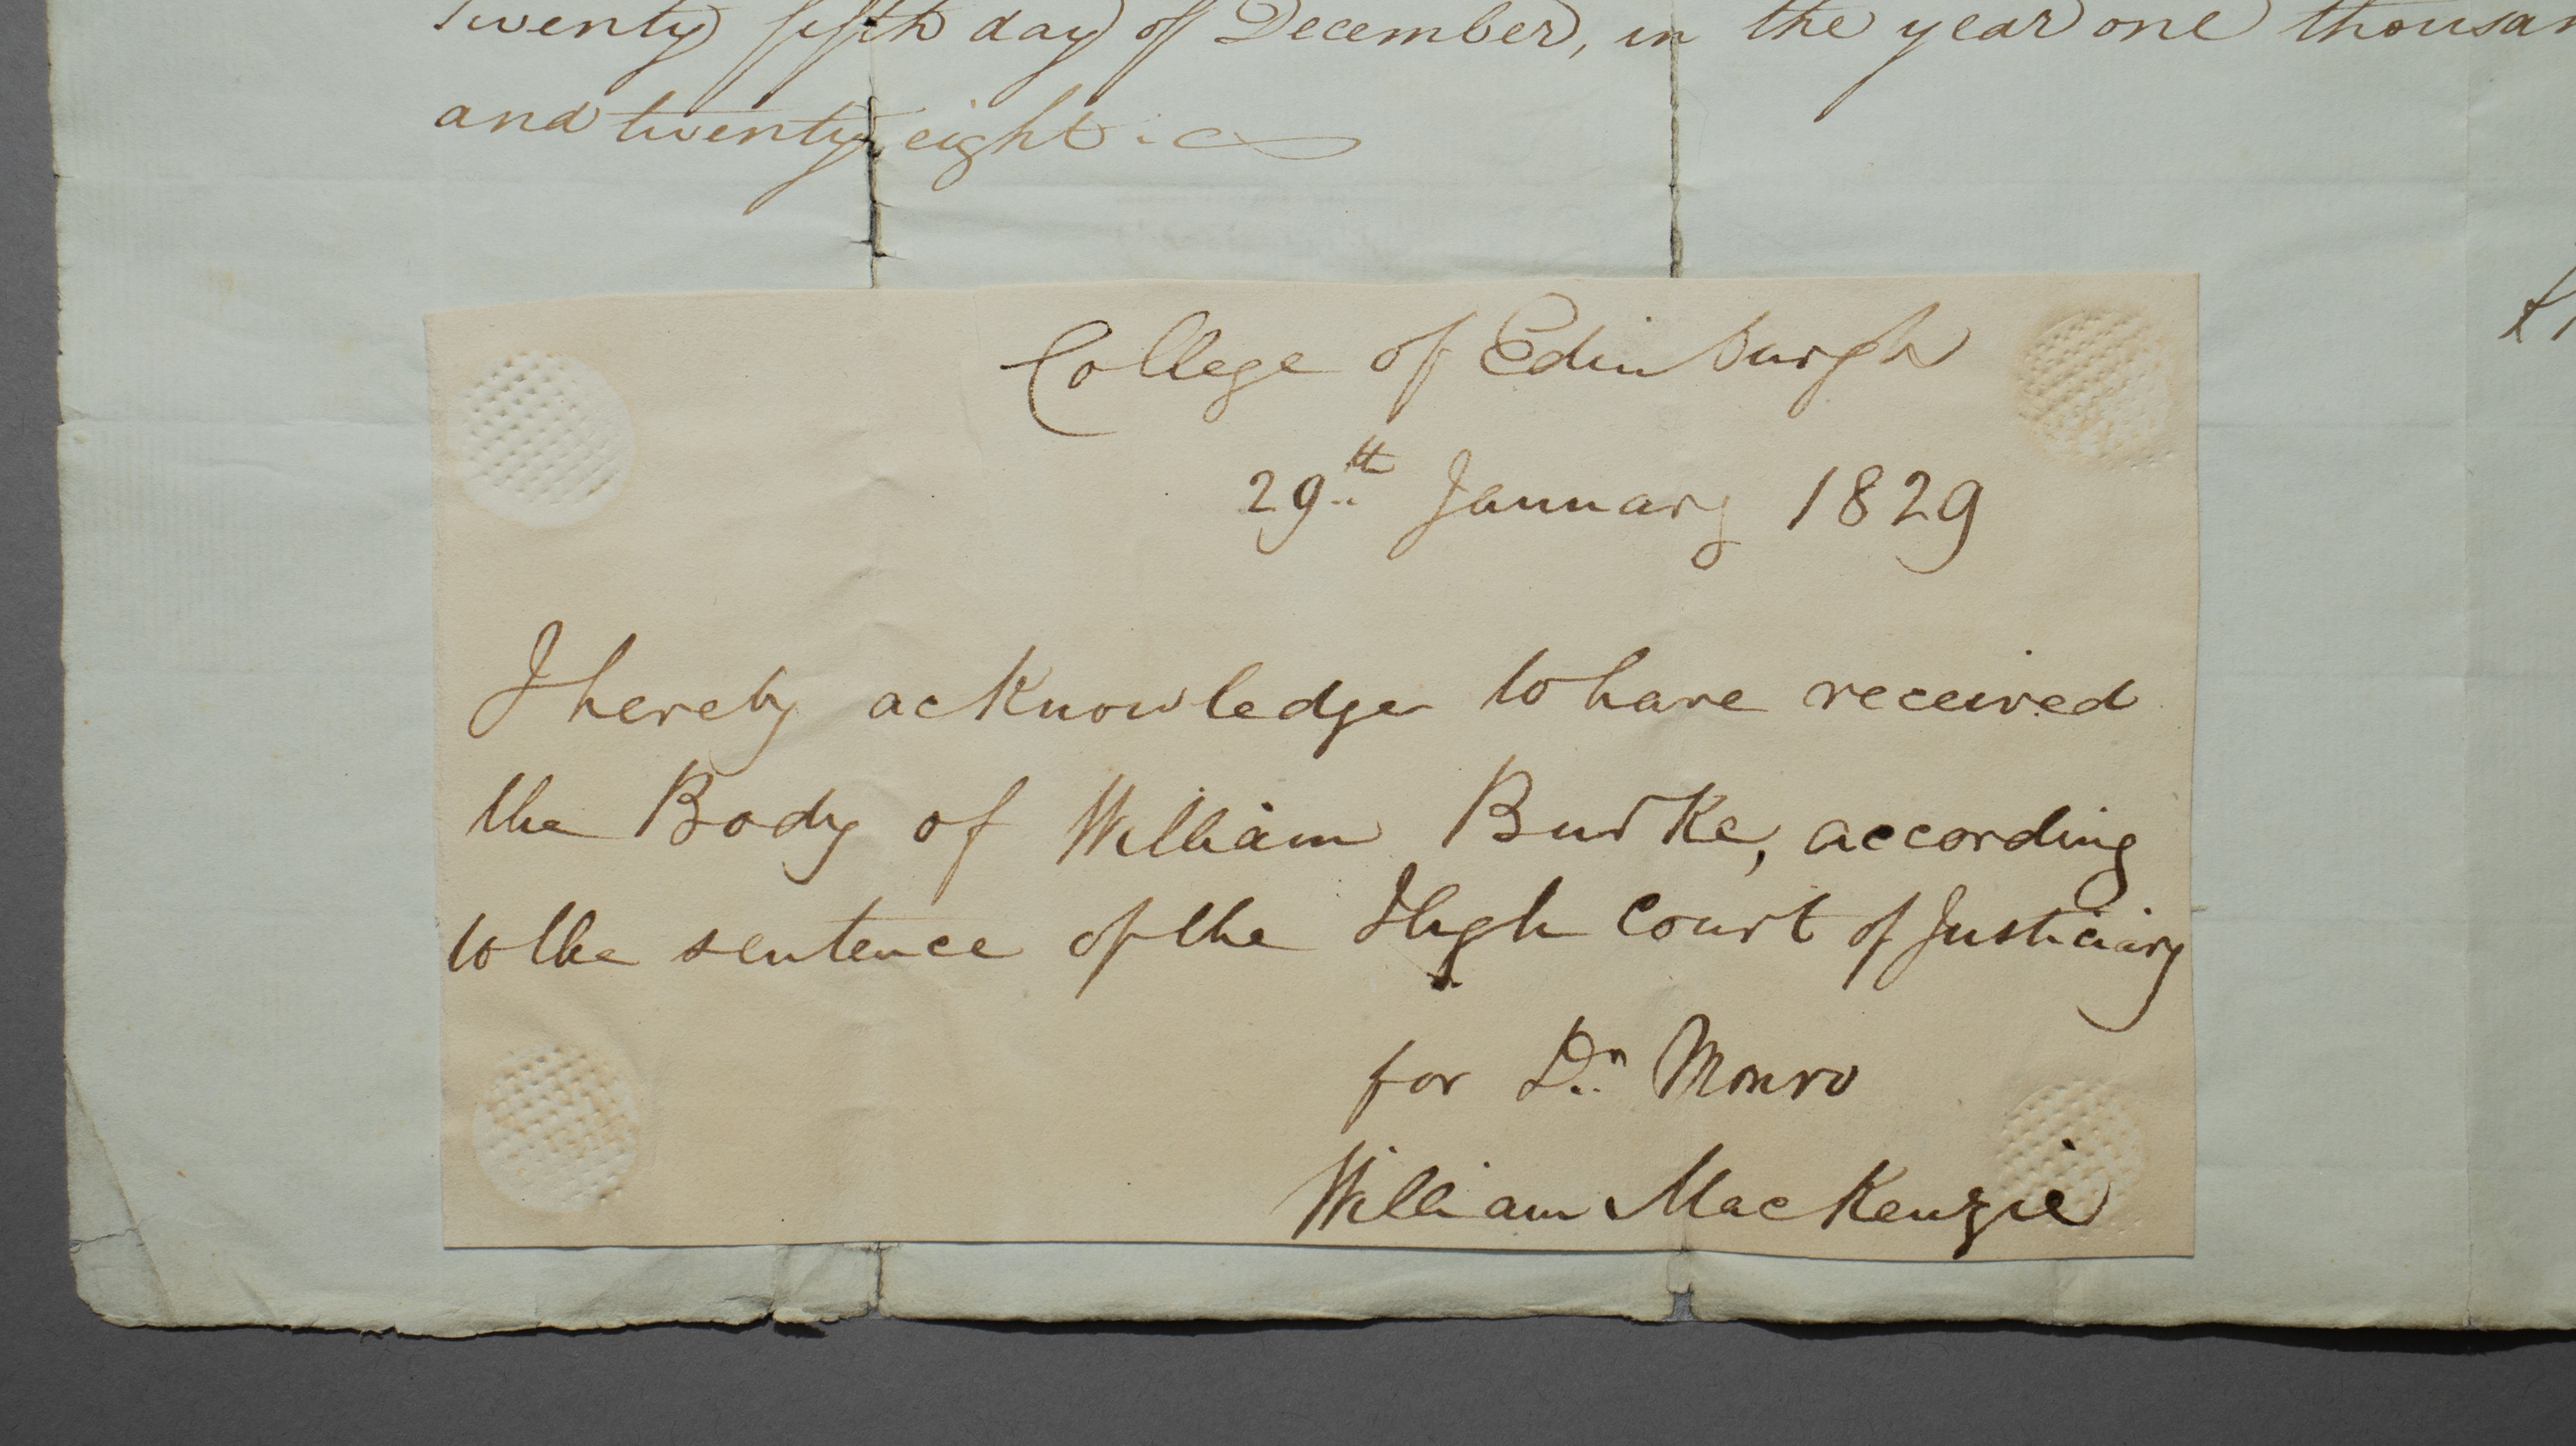 Twenty fifth day of December, in the year one
and twenty eight.
College of Edinburgh
29th January 1829
I hereby acknowledge to have received
the Body of William Burke, according
to the sentence of the High Court of Justiciary
for Dr. Monro
William MacKenzie